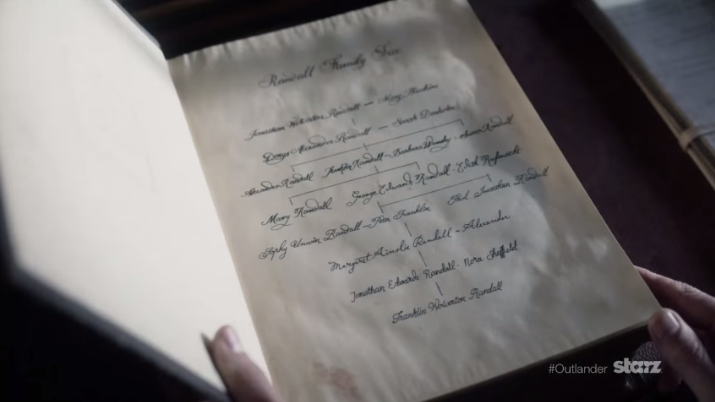 Randall Family Tree
Jonathan Wolverton Randall — Mary Hawkins
Denys Alexander Randall — Sarah
Alexander Randall Franklin Randall — Barbara Randall
Mary Randall George Edward Randall - Edith
Sophy Randall — Peter Franklin Paul Jonathan Randall
Margaret Ainslie Randall - Alexander
Jonathan Edward Randall - Nora Sheffield
Franklin Wolverton Randall
#Outlander starz